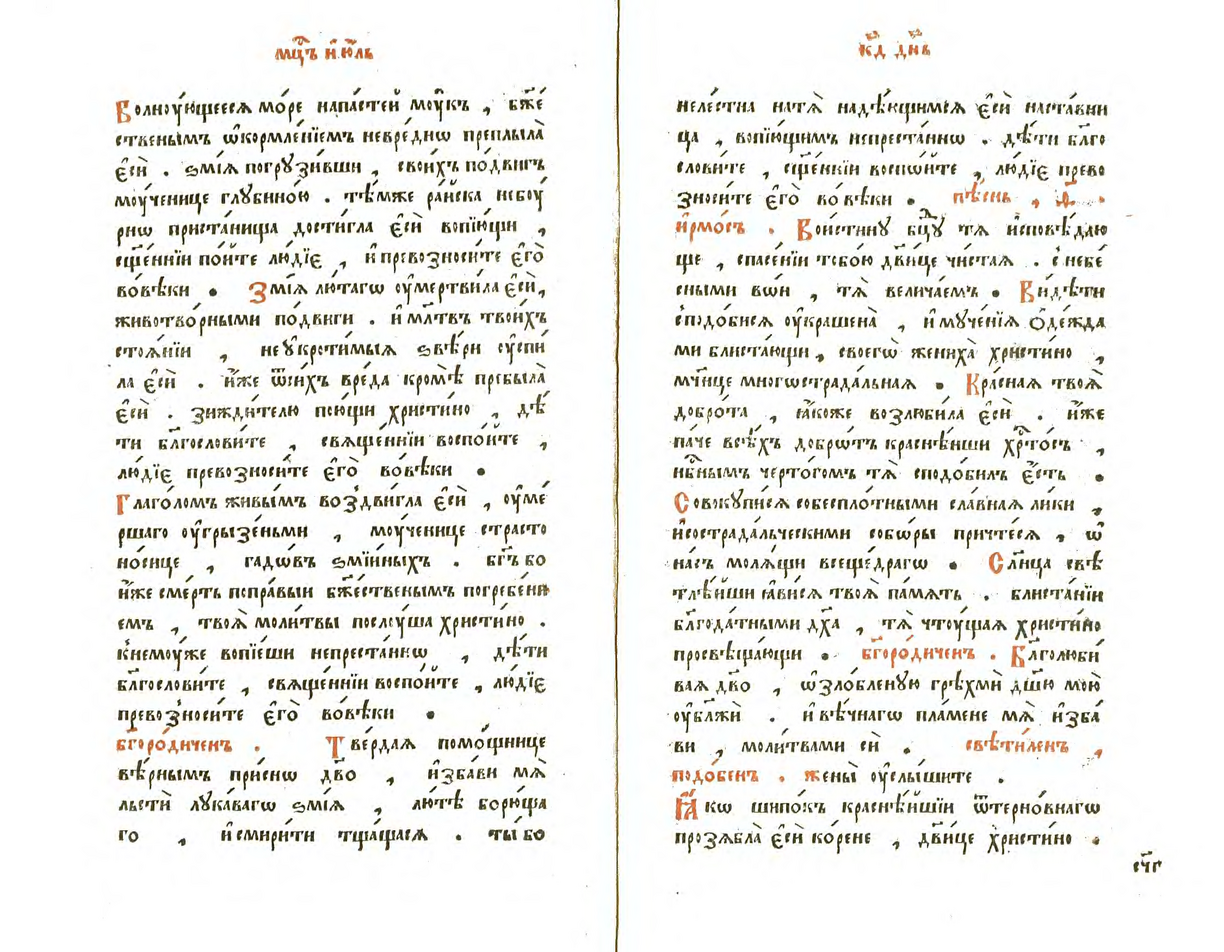 мц҃ъ і҆ю҆́ль
Волноꙋ́ющееся мо́ре напа́стей моꙋ́къ , бж҃е
ственымъ ѡ҆кормле́нїемъ невре́днѡ преплыла̀
є҆сѝ . ѕмі́ѧ погрꙋзи́вши , свои́хъ по́двигъ
моꙋ́ченице глꙋбино́ю . тѣ́мже ра́йска небоꙋ́
рнѡ приста́нища дости́гла є҆сѝ вопїю́щи ,
сщ҃е́ннїи по́йте лю́дїє , и҆ превозноси́те є҆го̀
во́вѣки . Змі́ѧ лю́тагѡ оу҆мертви́ла є҆сѝ,
животво́рными по́двиги . и҆ мл҃твъ твои́хъ
стоѧ́нїи , неꙋкроти́мыѧ ѕвѣ́ри оу҆спи́
ла є҆сѝ . и҆́же ѿси́хъ вре́да кромѣ̀ пребыла̀
є҆сѝ . зижди́телю пою́щи христи́но , дѣ́
ти благослови́те , свѧще́ннїи воспо́йте ,
лю́дїє превозноси́те є҆го̀ во́вѣки .
Глаго́ломъ живы́мъ воздви́гла є҆сѝ , оу҆ме́
ршаго оу҆грызе́ньми , моꙋ́ченице страсто
но́сице , га́довъ ѕмі́йныхъ . бг҃ъ бо
и҆́же сме́рть попра́выи бж҃ественымъ погребе́ни
емъ , твоѧ̀ моли́твы послꙋша христи́но .
К немоꙋ́же вопїе́ши непреста́ннѡ , дѣ́ти
благослови́те , свѧще́ннїи воспо́йте , лю́дїє
превозноси́те є҆го̀ во́вѣки .
бг҃оро́диченъ . Тве́рдаѧ помо́щнице
вѣ́рнымъ при́снѡ дв҃о , и҆зба́ви мѧ̀
льстѝ лꙋка́вагѡ ѕмі́ѧ , лю́тѣ борю́ща
го , и҆ смири́ти тща́щасѧ . ты́ бо
кд҃ дн҃ь
неле́стна на тѧ̀ надѣ́ющимсѧ є҆сѝ наста́вни
ца , вопїю́щимъ непреста́ннѡ . дѣ́ти бл҃го
слови́те , сщ҃е́ннїи воспо́йте , лю́дїє прево
зноси́те є҆го̀ во́вѣки . пѣ́снь , ѳ҃ .
і҆рмо́съ . Вои́стинꙋ бц҃ꙋ тѧ̀ и҆сповѣ́даю
ще , спасе́нїи тобо́ю дв҃ице чи́стаѧ . с небе́
сными во́и , тѧ̀ велича́емъ . Ви́дѣти
сподо́бисѧ оу҆кра́шена̀ , и҆ мꙋче́нїѧ ѻ҆де́жда
ми блиста́ющи , своегѡ̀ жениха̀ христи́но ,
мч҃нице многѡстрада́льнаѧ . Кра́снаѧ твоѧ̀
добро́та , ꙗ҆́коже возлюби́ла є҆сѝ . и҆́же
па́че всѣ́хъ добро́тъ краснѣ́йши хр҃то́съ ,
нб҃нымъ черто́гомъ тѧ̀ сподо́билъ є҆́сть .
Совокꙋпи́сѧ собеспло́тными сла́внаѧ ли́ки ,
и҆ сострада́льческими собо́ры причте́сѧ , ѡ҆
на́съ молѧ́щи всеще́драгѡ . Сл҃нца свѣ
тлѣ́йши ꙗ҆ви́сѧ твоѧ̀ па́мѧть . блиста́нїи
благода́тными дх҃а , тѧ̀ чтоꙋ́щаѧ христи́но
просвѣща́ющи . бг҃оро́диченъ . Благолюби́
ваѧ дв҃о , ѡ҆зло́бленꙋю грѣхмѝ дш҃ю мою̀
оу҆блажѝ . и҆ вѣ́чнагѡ пла́мене мѧ̀ и҆зба́
ви , моли́твами си̑ . свѣти́ленъ ,
подо́бенъ . жены̀ оу҆слы́шите .
Ꙗ҆́кѡ шипо́къ краснѣ́йшїи ѿ терно́внагѡ
прозѧбла̀ є҆сѝ ко́рене , дв҃ице христи́но .
сч҃г